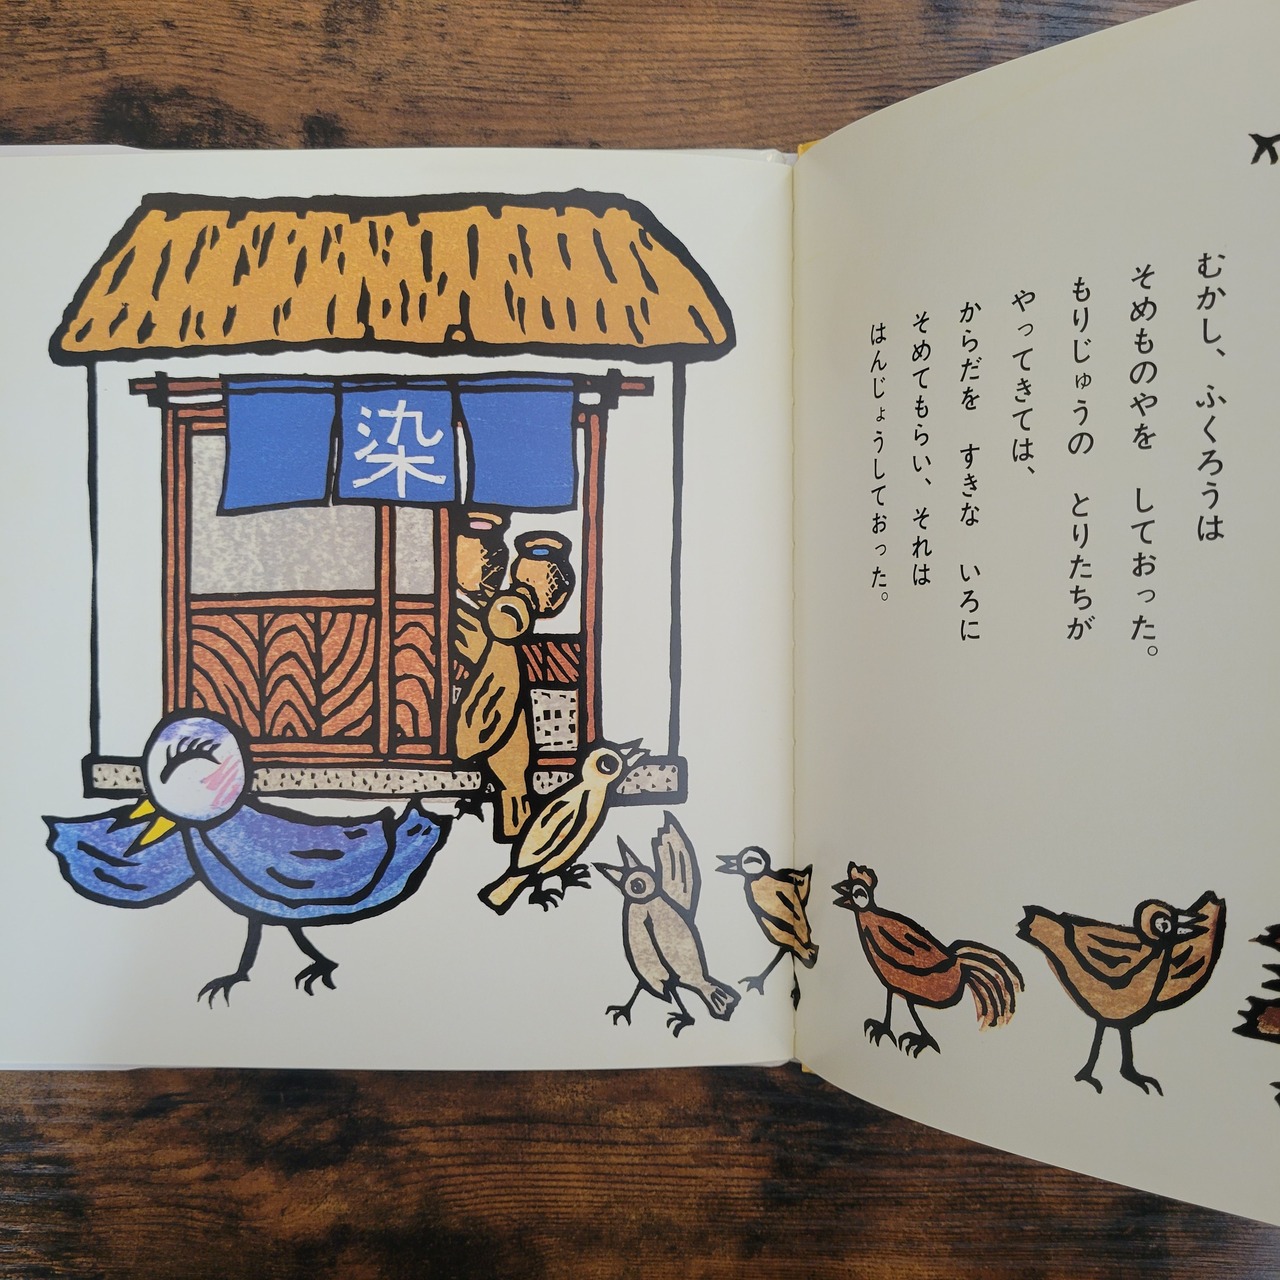 染
むかし、ふくろうは
そめものやを　しておった。
もりじゅうの　とりたちが
やってきては、
からだを　すきな　いろに
そめてもらい、それは
はんじょうしておった。